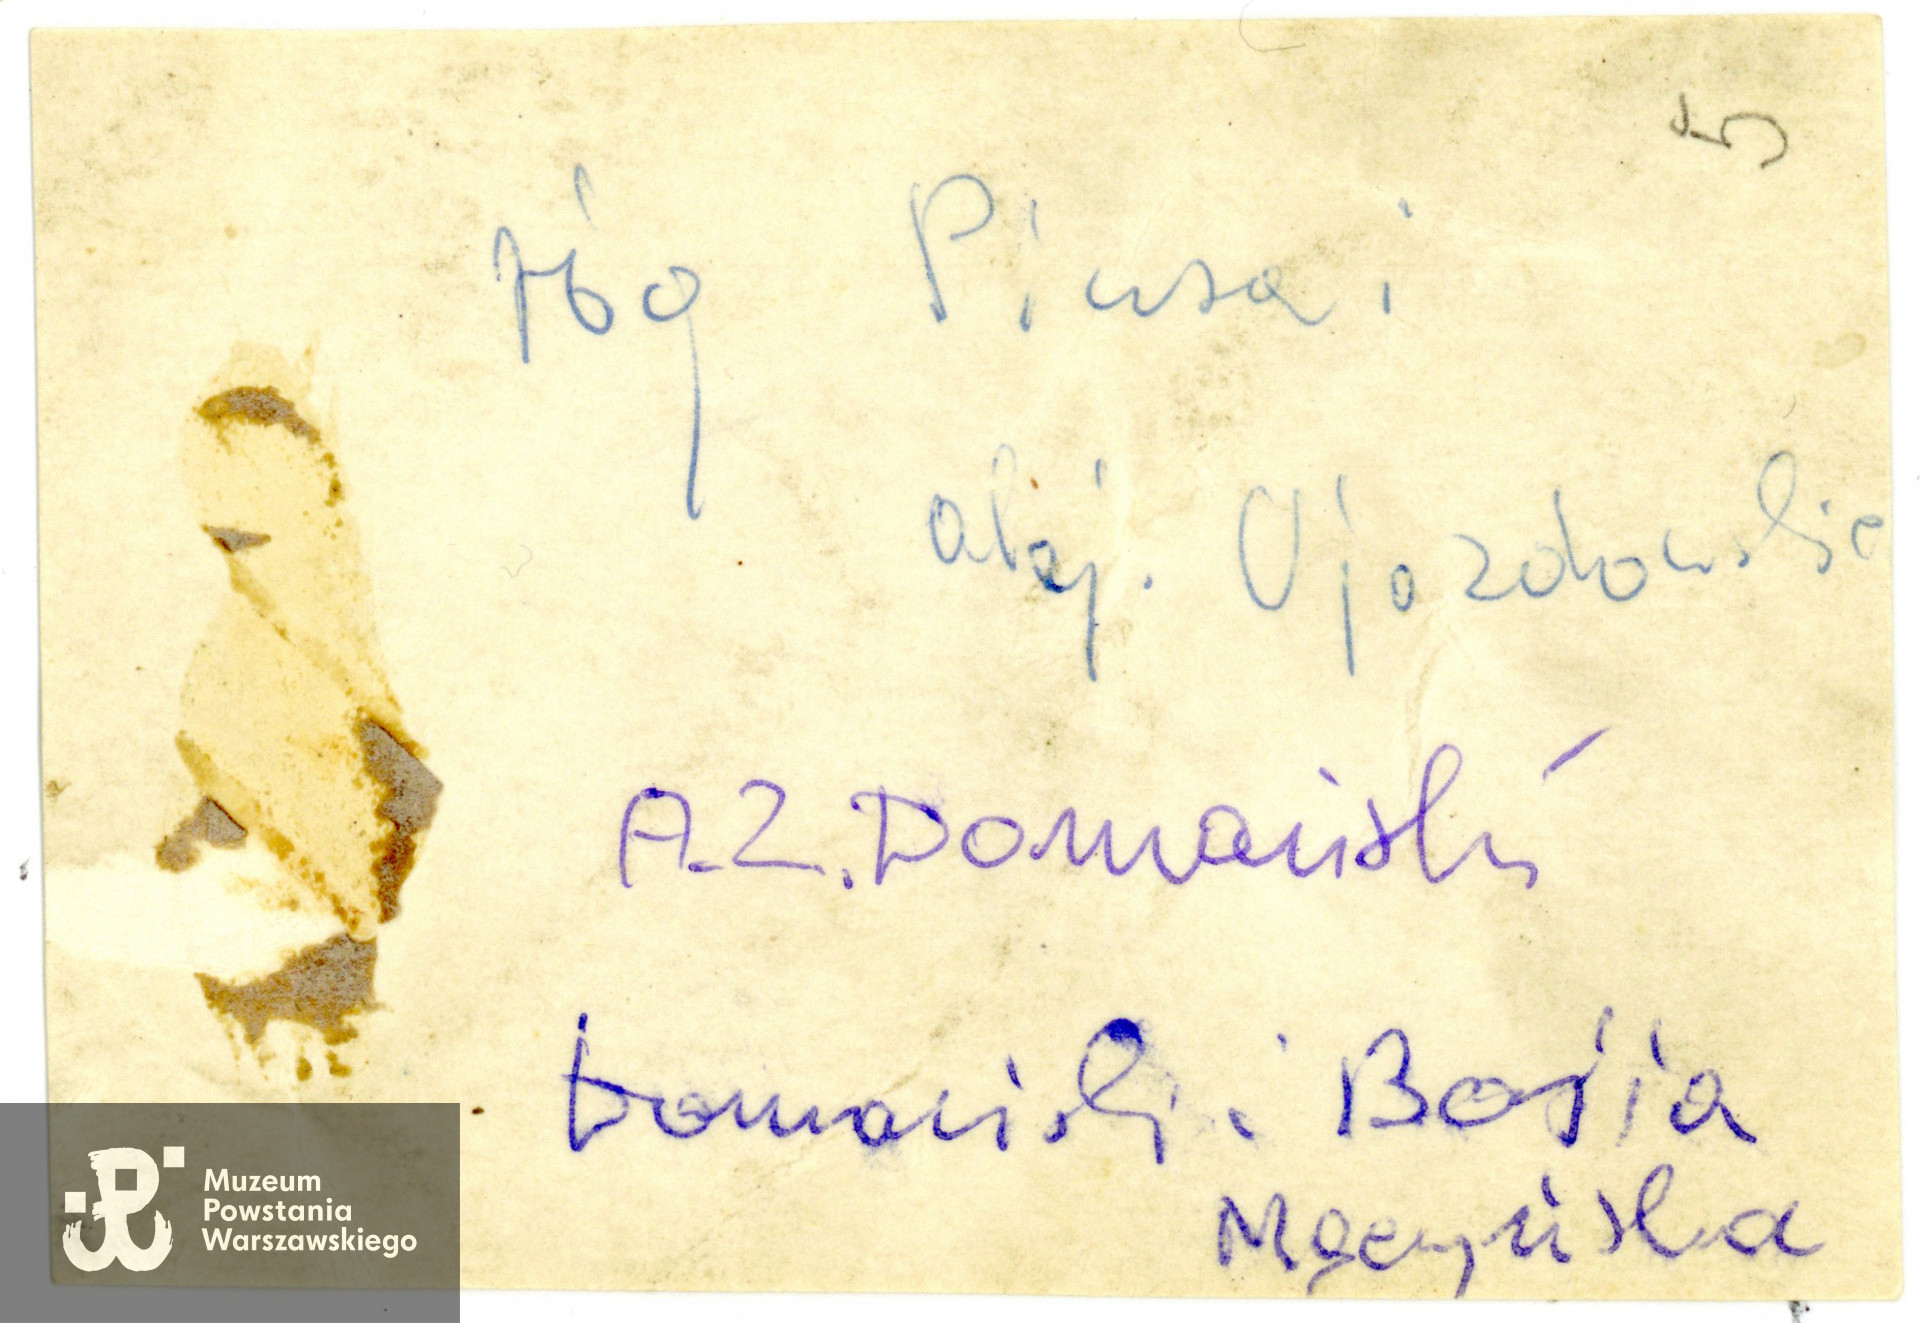 5
róg Piusa i
alej. Ujazdowskie
A.Z. Domański
Domański i Basia
Mączyńska
Muzeum
Powstania
Warszawskiego